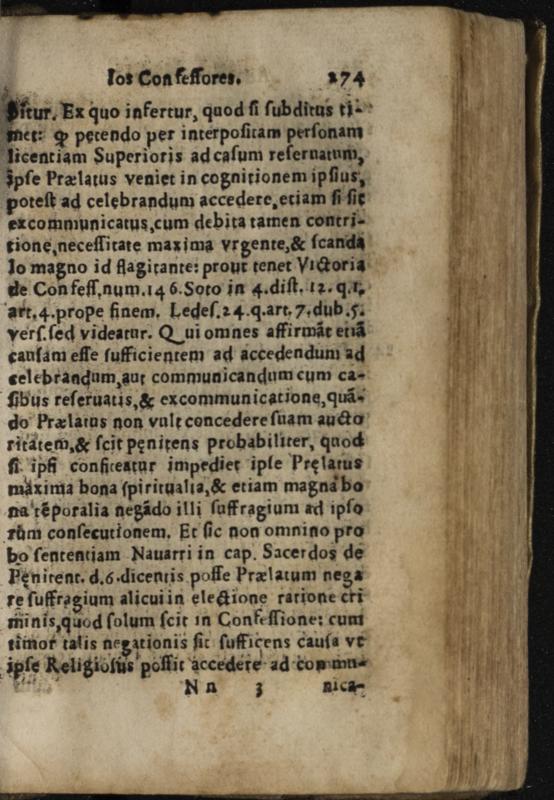 los Confessores. 274
ditur. Ex quo infertur, quod si subditus ti-
met: ꝙ petendo per interpositam personam
licentiam Superioris ad casum reseruatum,
ipse Prælatus veniet in cognitionem ipsius,
potest ad celebrandum accedere, etiam si sit
excommunicatus, cum debita tamen contri-
tione, necessitate maxima vrgente, & scanda
lo magno id flagitante: prout tenet Victoria
de Confess, num. 146. Soto in 4. dist. 12. q. 1.
art. 4. prope finem. Ledes. 24. q. art. 7. dub. 5.
vers. sed videatur. Qui omnes affirmãt etiã
causam esse sufficientem ad accedendum ad
celebrandum, aut communicandum cum ca-
sibus reseruatis, & excommunicatione, quã-
do Prælatus non vult concedere suam aucto
ritatem, & scit pęnitens probabiliter, quod
si ipsi confiteatur impediet ipse Pręlatus
maxima bona spiritualia, & etiam magna bo
na tẽporalia negãdo illi suffragium ad ipso
rum consecutionem. Et sic non omnino pro
bo sententiam Nauarri in cap. Sacerdos de
Pęnitent. d. 6. dicentis posse Prælatum nega
re suffragium alicui in electione ratione cri
minis, quod solum scit in Confessione: cum
timor talis negationis sit sufficens causa vt
ipse Religiosus possit accedere ad commu-
N n 3 nica-